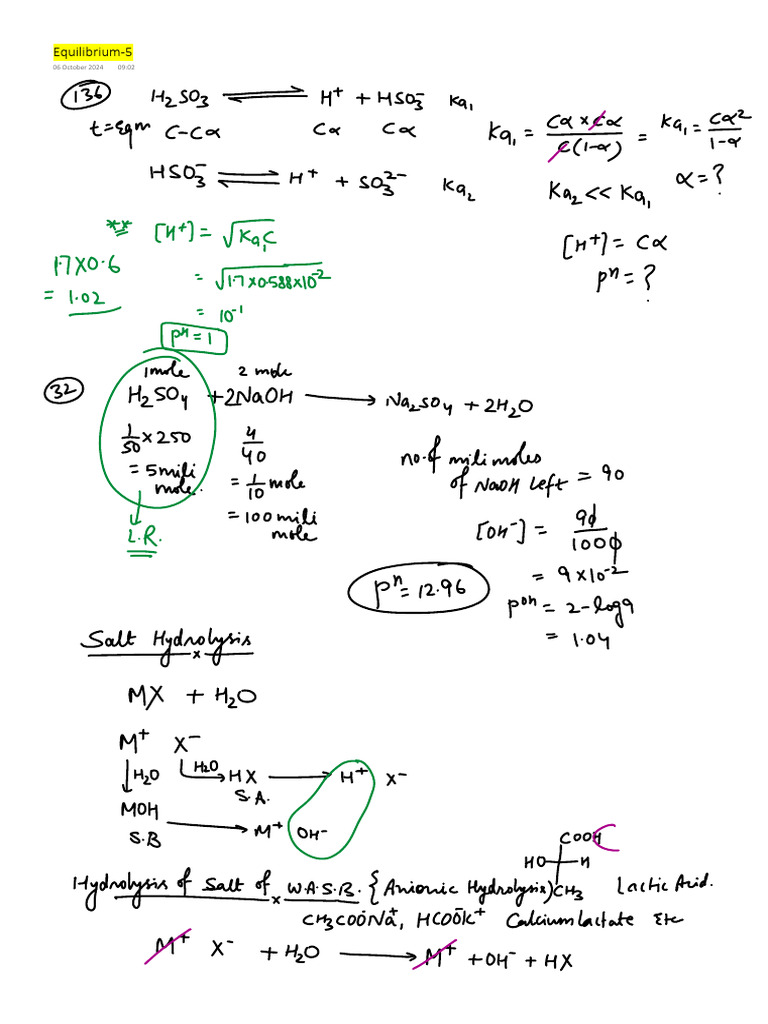 Equilibrium-5
06 October 2024 09:02
(136) H₂SO₃ ⇌ H⁺ + HSO₃⁻ Ka₁
t=eqm C-Cα Cα Cα
Ka₁ = Cα×Cα / C(1-α) = Ka₁ = Cα² / 1-α
HSO₃⁻ ⇌ H⁺ + SO₃²⁻ Ka₂
Ka₂ << Ka₁ α = ?
** [H⁺] = √Ka₁C
[H⁺] = Cα
1.7×0.6
= 1.02
= √1.7×0.588×10⁻²
pH = ?
= 10⁻¹
pH = 1
1mole 2 mole
(32) H₂SO₄ + 2NaOH ⟶ Na₂SO₄ + 2H₂O
1/50 × 250 4/40
= 5 mili mole. = 1/10 mole
= 100 mili mole
L.R.
no. of mili moles
of NaOH left = 90
[OH⁻] = 90 / 1000
= 9×10⁻²
pH = 12.96
pOH = 2-log9
= 1.04
Salt Hydrolysis
MX + H₂O
M⁺ X⁻
H₂O H₂O HX ⟶ H⁺ X⁻
S.A.
MOH ⟶ M⁺ OH⁻
S.B
COOH
HO H
CH₃ Lactic Acid.
Hydrolysis of Salt of W.A.S.B. {Anionic Hydrolysis}
CH₃COO⁻Na⁺, HCOO⁻K⁺ Calcium lactate Etc
M⁺ X⁻ + H₂O ⟶ M⁺ + OH⁻ + HX